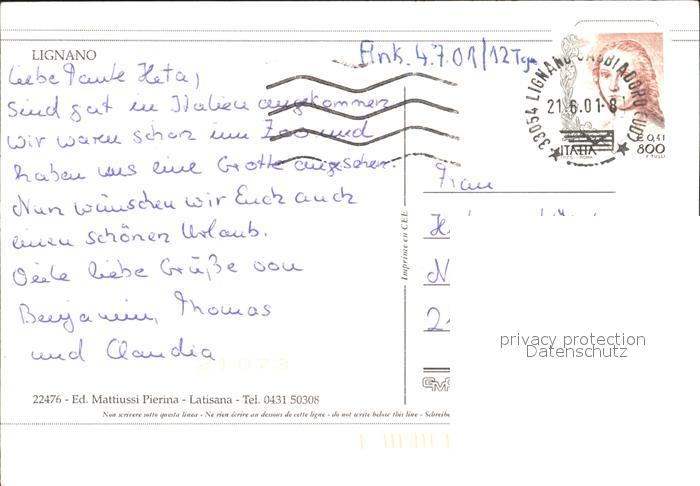 LIGNANO
Ank. 4.7.01/12 Tge
Liebe Tante Heta,
sind gut in Italien angekommen
wir waren schon im Zoo und
haben uns eine Grotte angesehen.
Nun wünschen wir Euch auch
einen schönen Urlaub.
Viele liebe Grüße von
Benjamin, Thomas
und Claudia
22476 - Ed. Mattiussi Pierina - Latisana - Tel. 0431 50308
Non scrivere sotto questa linea - Ne rien écrire au dessous de cette ligne - do not write below this line - Schreibe
Imprimée en CEE
33054 LIGNANO SABBIADORO (UD)
21.6.01-8
€ 0,41
800
ITALIA
Frau
H
N
2
privacy protection
Datenschutz